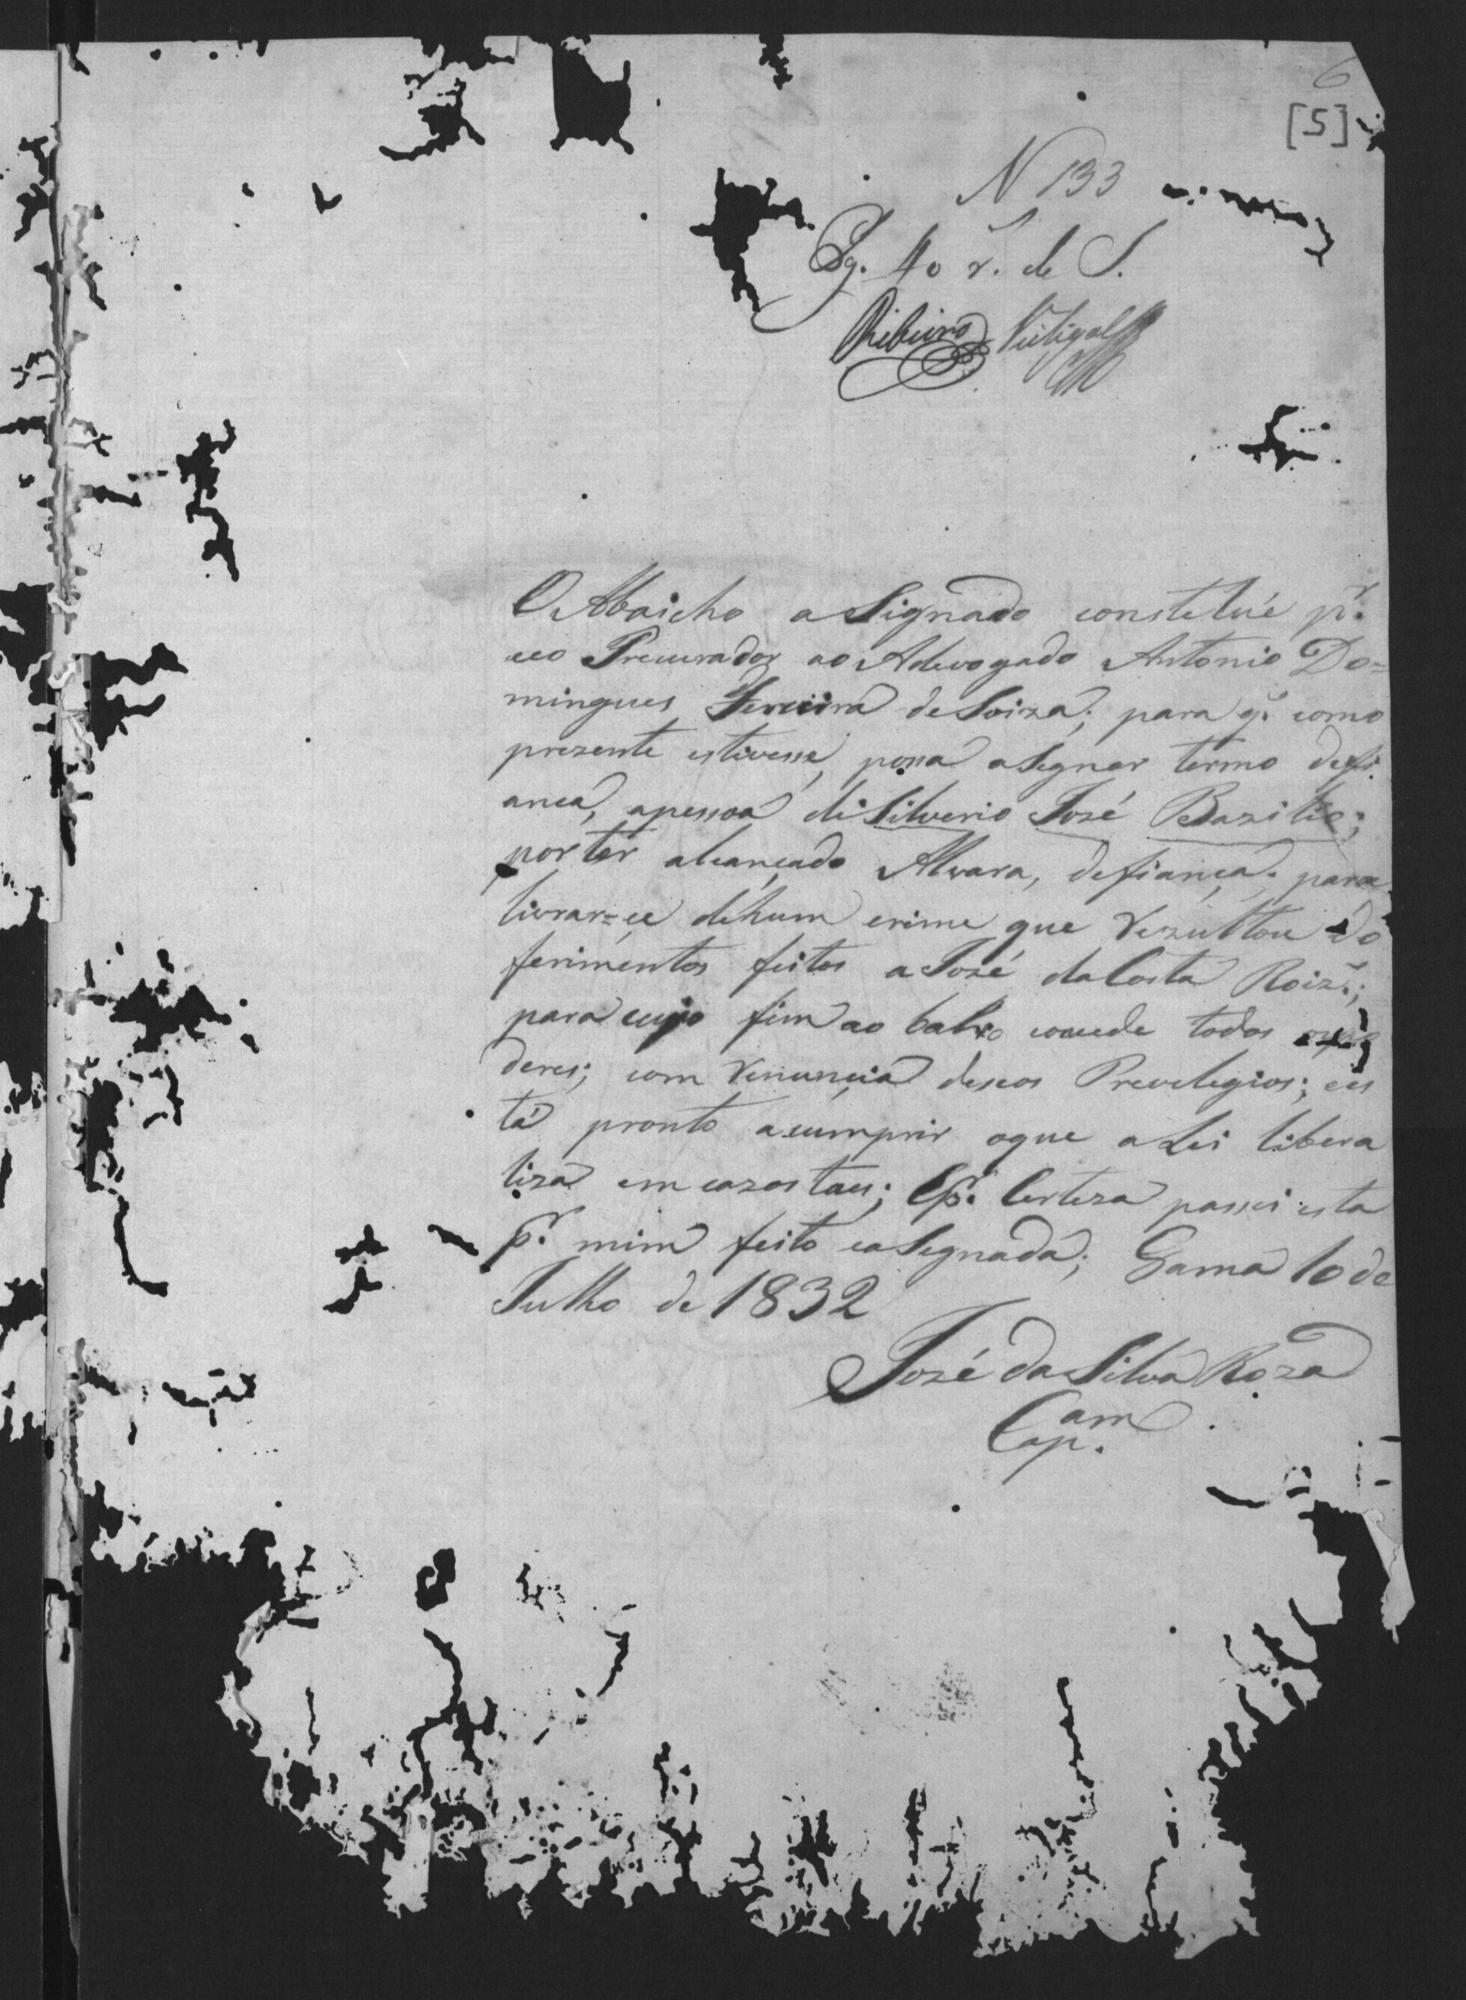 6
[5]
N 133
Pg. 40 r.s de S.
Ribeiro Vidigal
O Abaicho aSignado constetué p.r
ceo Precurador ao Adevogado Antonio Do=
mingues Ferreira de Soiza; para q.' como
prezente estivesse, possa aSegnar termo defi
anca, apessoa de Silverio José Bazilio;
por ter alcançado Alvara, defiança; para
livrar=ce dehum crime que Rezultou do
ferimentos feitos a José da Costa Roiz.';
para cujo fim ao bahxo concede todos ospo
deres; com Renunçia deseos Prevelegios; ees
tá pronto acumprir oque a Lei libera
liza em cazos taes; Ep.r Certeza passei esta
p.r mim feito eaSegnada; Gama 10 de
Julho de 1832
José da Silva Roza
Cap.am